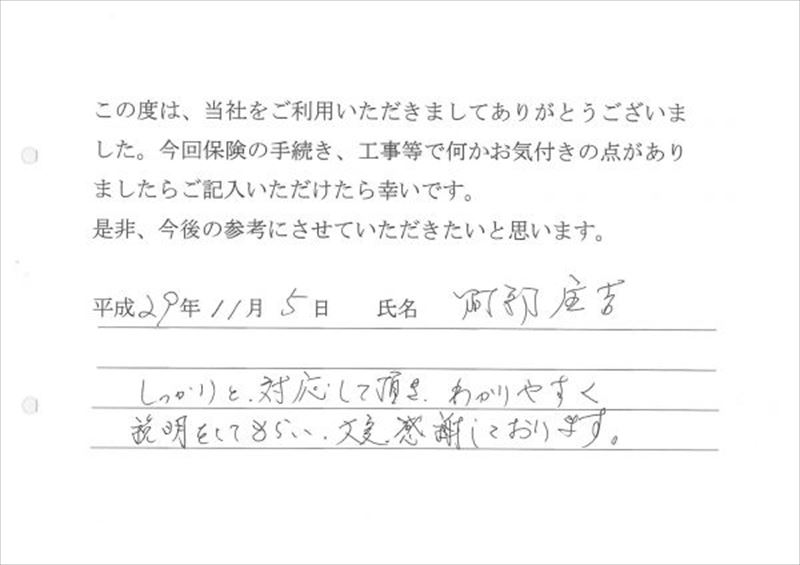 この度は、当社をご利用いただきましてありがとうございま
した。今回保険の手続き、工事等で何かお気付きの点があり
ましたらご記入いただけたら幸いです。
是非、今後の参考にさせていただきたいと思います。
平成29年11月5日 氏名 阿部庄吉
しっかりと、対応して頂き、わかりやすく
説明をしてもらい、大変、感謝しております。